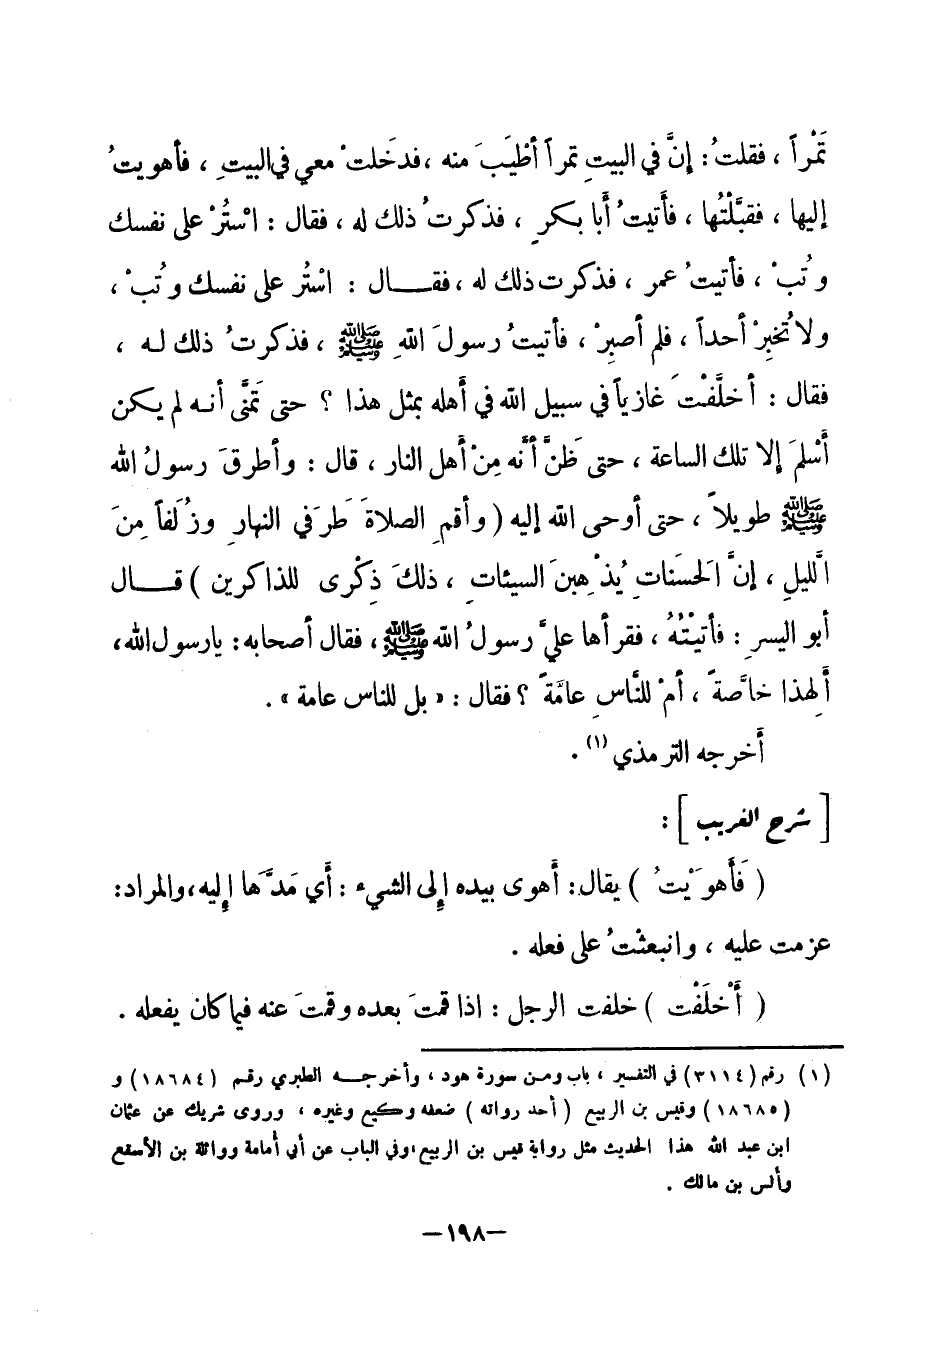 تَمْراً ، فقلتُ : إنَّ في البيتِ تمراً أطْيَبَ منه ، فدخَلتْ معي في البيتِ ، فأهويتُ
إليها ، فقبَّلْتُها ، فأتيتُ أبا بكرٍ ، فذكرتُ ذلك له ، فقال : اسْتُرْ على نفسك
وتُبْ ، فأتيتُ عمر ، فذكرت ذلك له ، فقــال : اسْتُر على نفسك وتُبْ ،
ولا تُخبِرْ أحداً ، فلم أصبِرْ ، فأتيتُ رسولَ اللهِ ﷺ ، فذكرتُ ذلك لـه ،
فقال : أخلَّفْتَ غازياً في سبيل الله في أهله بمثل هذا ؟ حتى تَمَنَّى أنـه لم يكن
أسْلمَ إلا تلك الساعة ، حتى ظَنَّ أنَّه مِنْ أهل النار ، قال : وأطرقَ رسولُ الله
ﷺ طويلاً ، حتى أوحى الله إليه ( وأقمِ الصلاةَ طَرَفي النهارِ وزُلَفاً مِنَ
الَّليلِ ، إنَّ الحَسَناتِ يُذْهِبنَ السيئاتِ ، ذلكَ ذِكْرى للذاكرين ) قــال
أبو اليسرِ : فأتيْتُهُ ، فقرأها عليَّ رسولُ الله ﷺ ، فقال أصحابه : يا رسول الله ،
أَلِهذا خاصَّةً ، أمْ للنَّاسِ عامَّةً ؟ فقال : « بل للناس عامة » .
أخرجه الترمذي (١) .
[ شرح الغريب ] :
( فَأَهوَيْتُ ) يقال : أهوى بيده إلى الشيء : أي مَدَّها إليه ، والمراد :
عزمت عليه ، وانبعثْتُ على فعله .
( أَخْلَفْت ) خلفت الرجل : اذا قمتَ بعده وقمتَ عنه فيما كان يفعله .
(١) رقم (٣١١٤) في التفسير ، باب ومـن سورة هود ، وأخرجــه الطبري رقـم (١٨٦٨٤) و
(١٨٦٨٥) وقيس بن الربيع ( أحد رواته ) ضعفه وكيع وغيره ، وروى شريك عن عثمان
ابن عبد الله هذا الحديث مثل رواية قيس بن الربيع ، وفي الباب عن أبي أمامة وواثلة بن الأسقع
وأنس بن مالك .
—١٩٨—